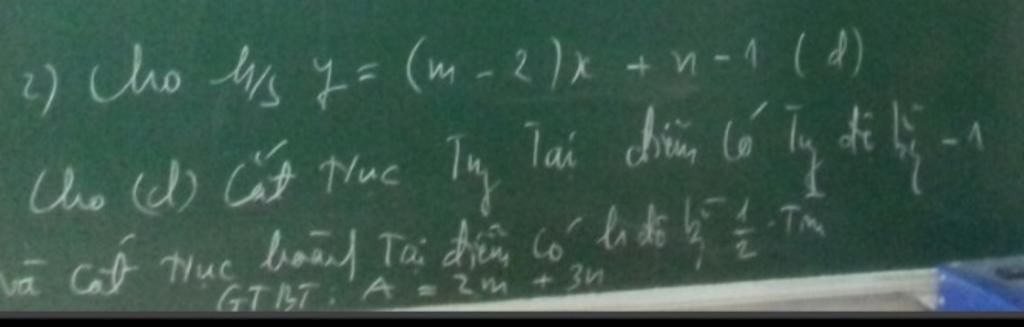 2) Cho h/s y = (m - 2)x + n - 1 (d)
Cho (d) Cắt trục Tung Tại điểm Có Tung độ bằng -1
và cắt trục hoành Tại điểm Có h độ bằng 1/2. Tìm
GTBT: A = 2m + 3n